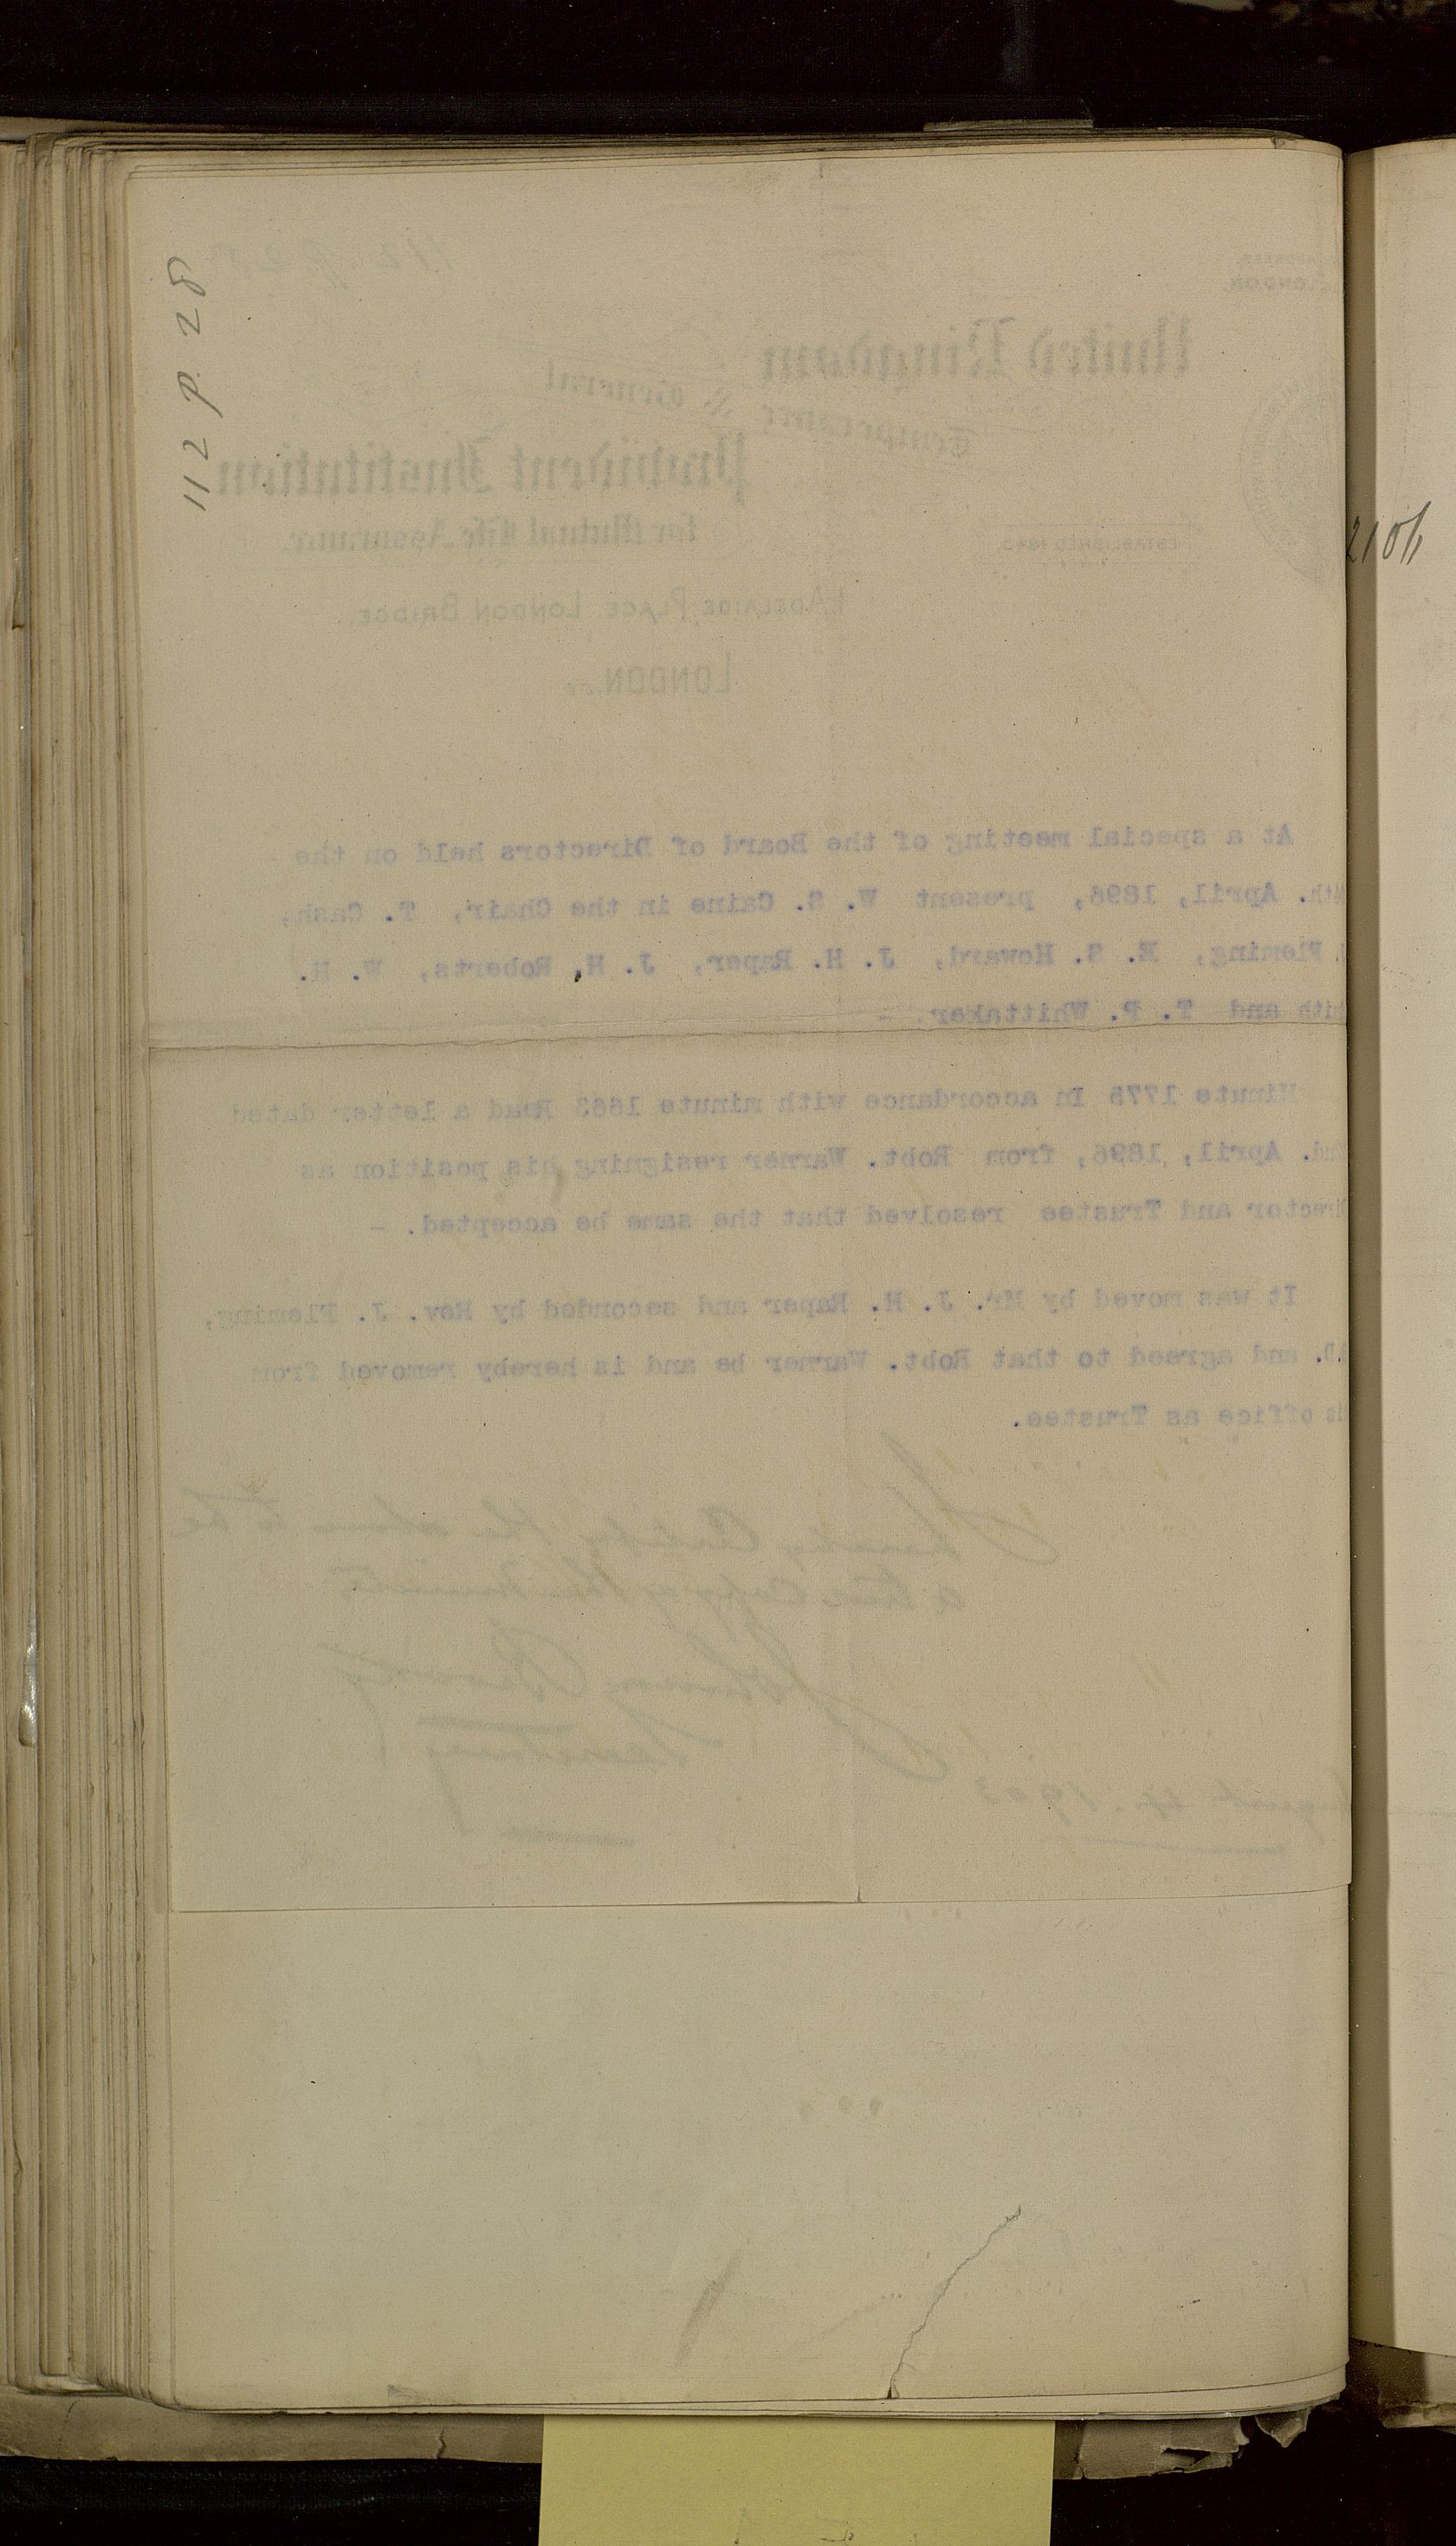 112 p. 28
112 p. 28
LONDON.
United Kingdom
Temperance & General
Provident Institution
for Mutual Life Assurance.
ESTABLISHED 1840.
1, ADELAIDE PLACE, LONDON BRIDGE,
LONDON.
At a special meeting of the Board of Directors held on the
th. April, 1896, present W. S. Caine in the Chair, T. Cash,
Fleming, E. S. Howard, J. H. Raper, J. H. Roberts, W. H.
and T. P. Whittaker. -
Minute 1775 In accordance with minute 1663 Read a letter dated
nd. April, 1896, from Robt. Warner resigning his position as
Director and Trustee resolved that the same be accepted. -
It was moved by Mr. J. H. Raper and seconded by Rev. J. Fleming,
D. and agreed to that Robt. Warner be and is hereby removed from
office as Trustee.
I hereby Certify the above to be
a true Copy of the Minute
Secretary
August 4. 1903